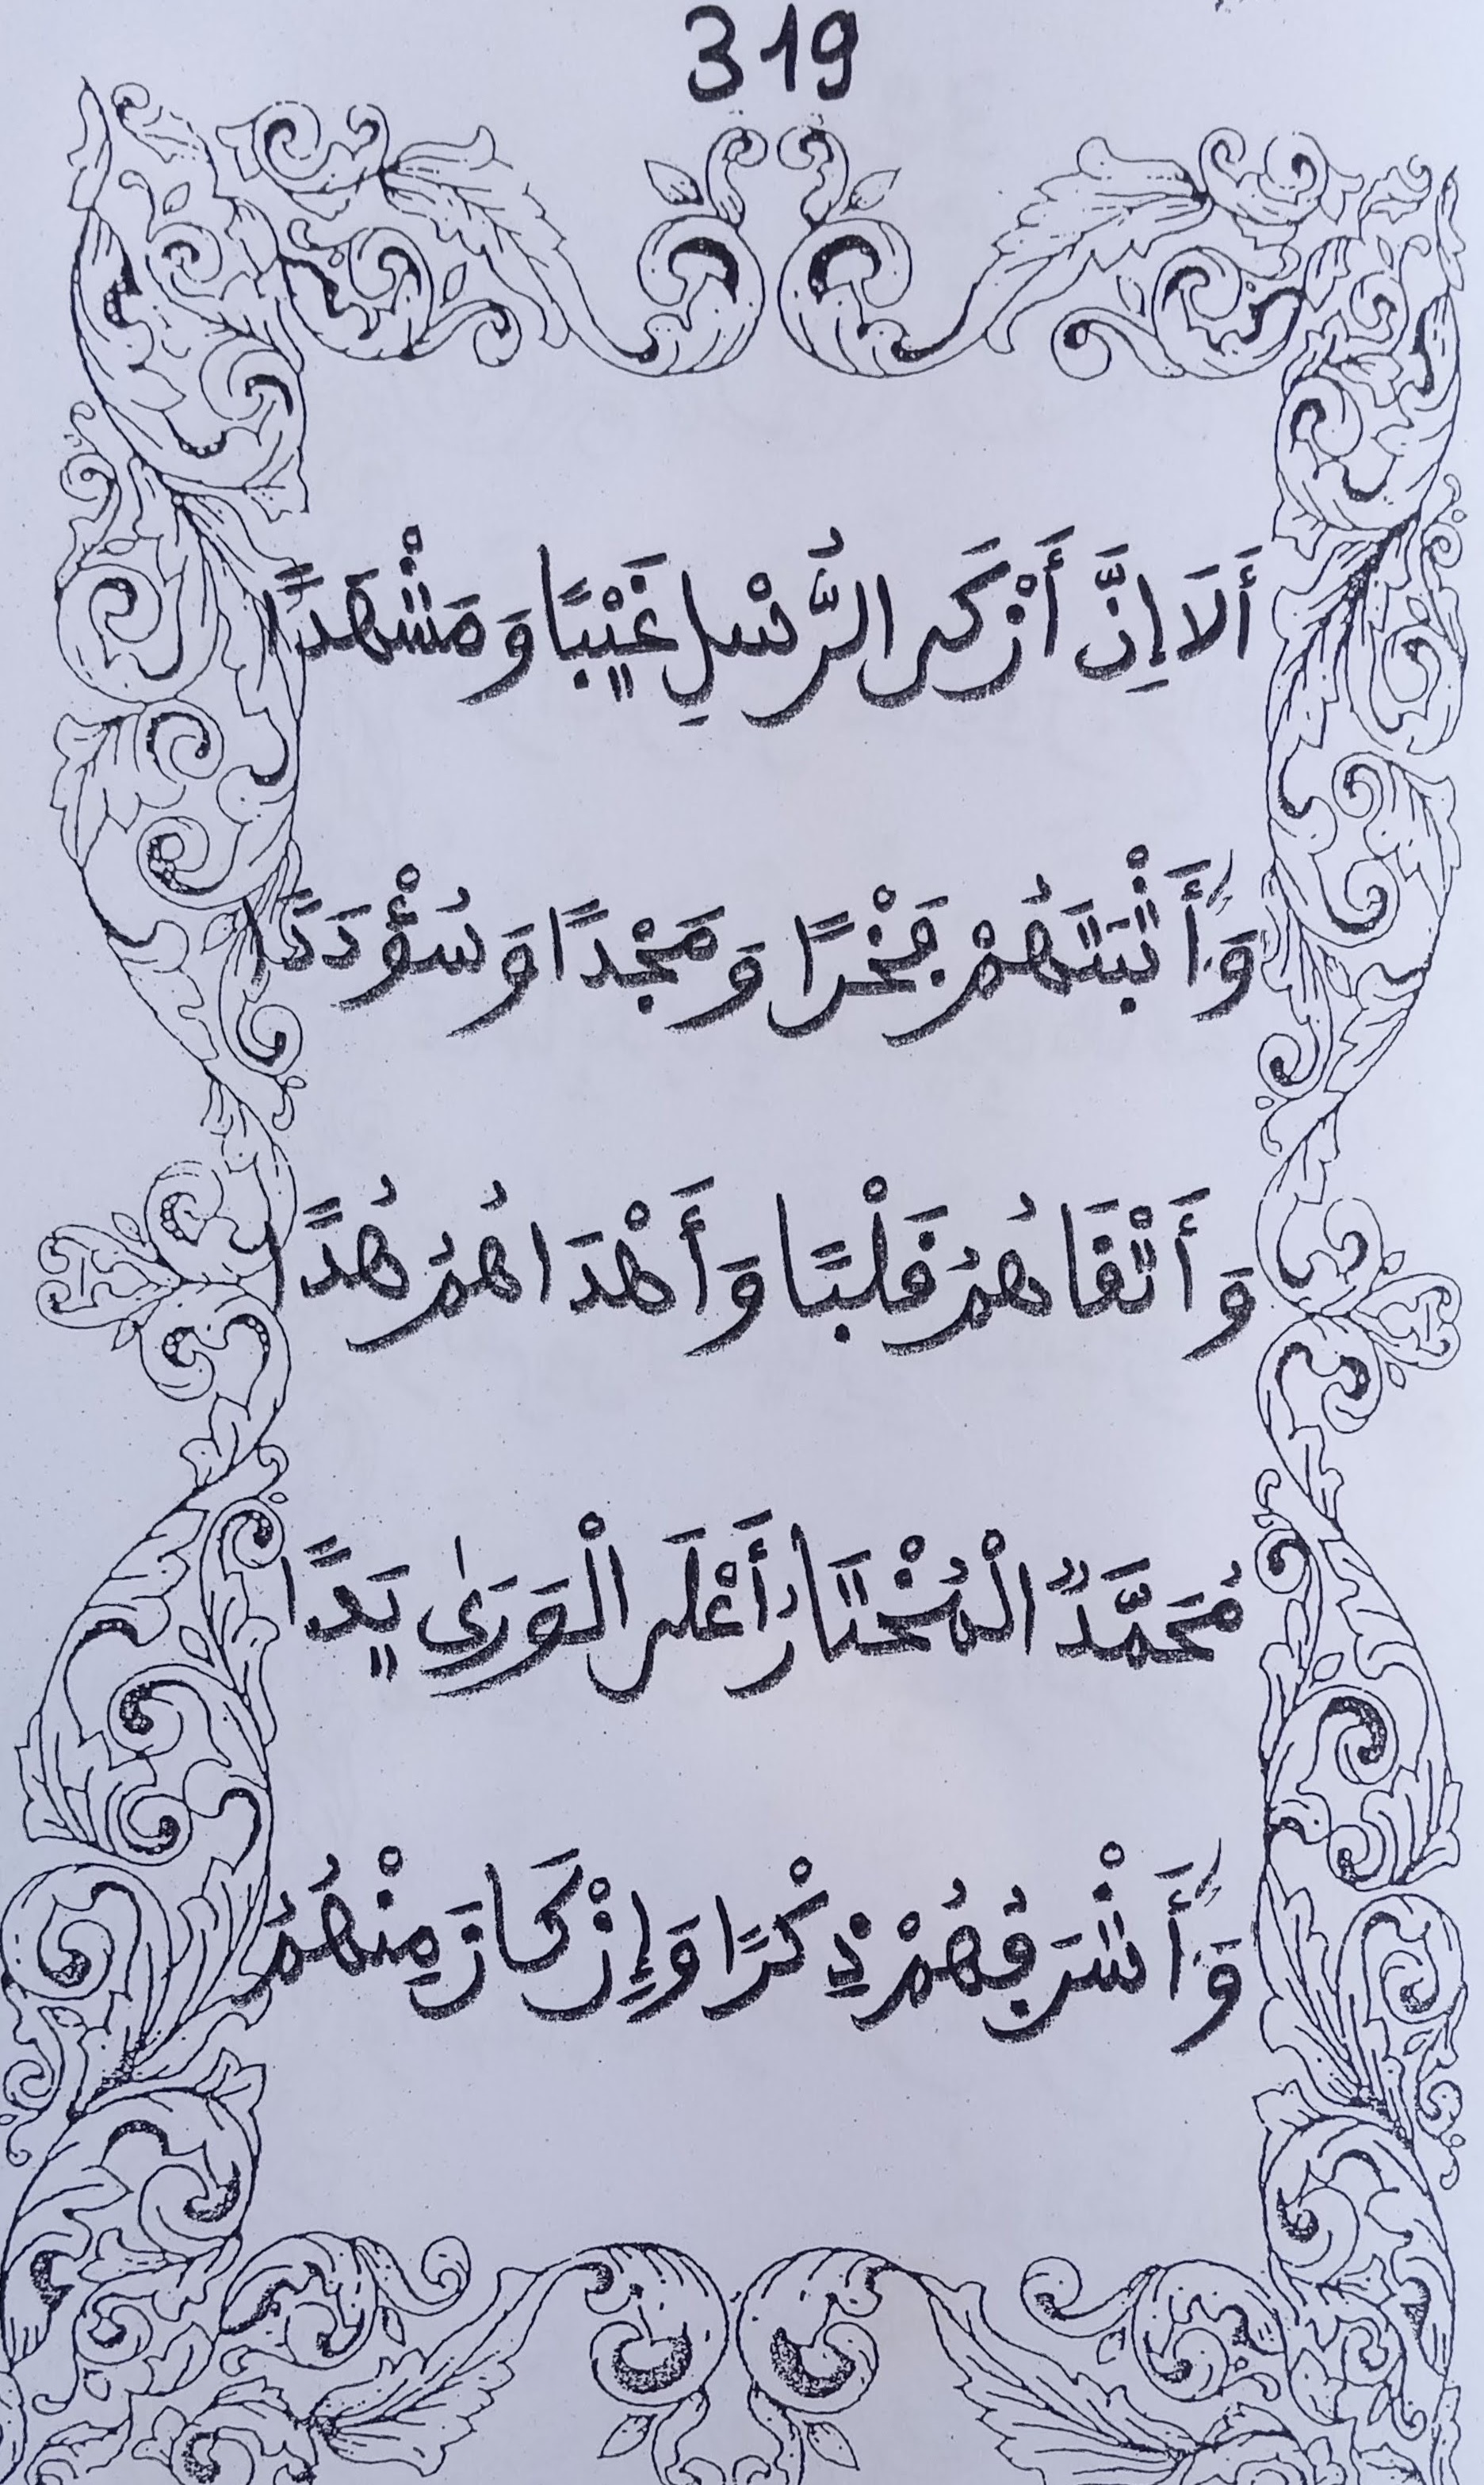 319
أَلَا إِنَّ أَزْكَى الرُّسْلِ غَيْبًا وَمَشْهَدًا
وَأَثْبَتَهُمْ فَخْرًا وَمَجْدًا وَسُؤْدَدًا
وَأَتْقَاهُمُ قَلْبًا وَأَهْدَاهُمُ هُدًا
مُحَمَّدٌ الْمُخْتَارُ أَعْلَى الْوَرَىٰ يَدًا
وَأَشْرَفُهُمْ ذِكْرًا وَإِنْ كَانَ مِنْهُمُ